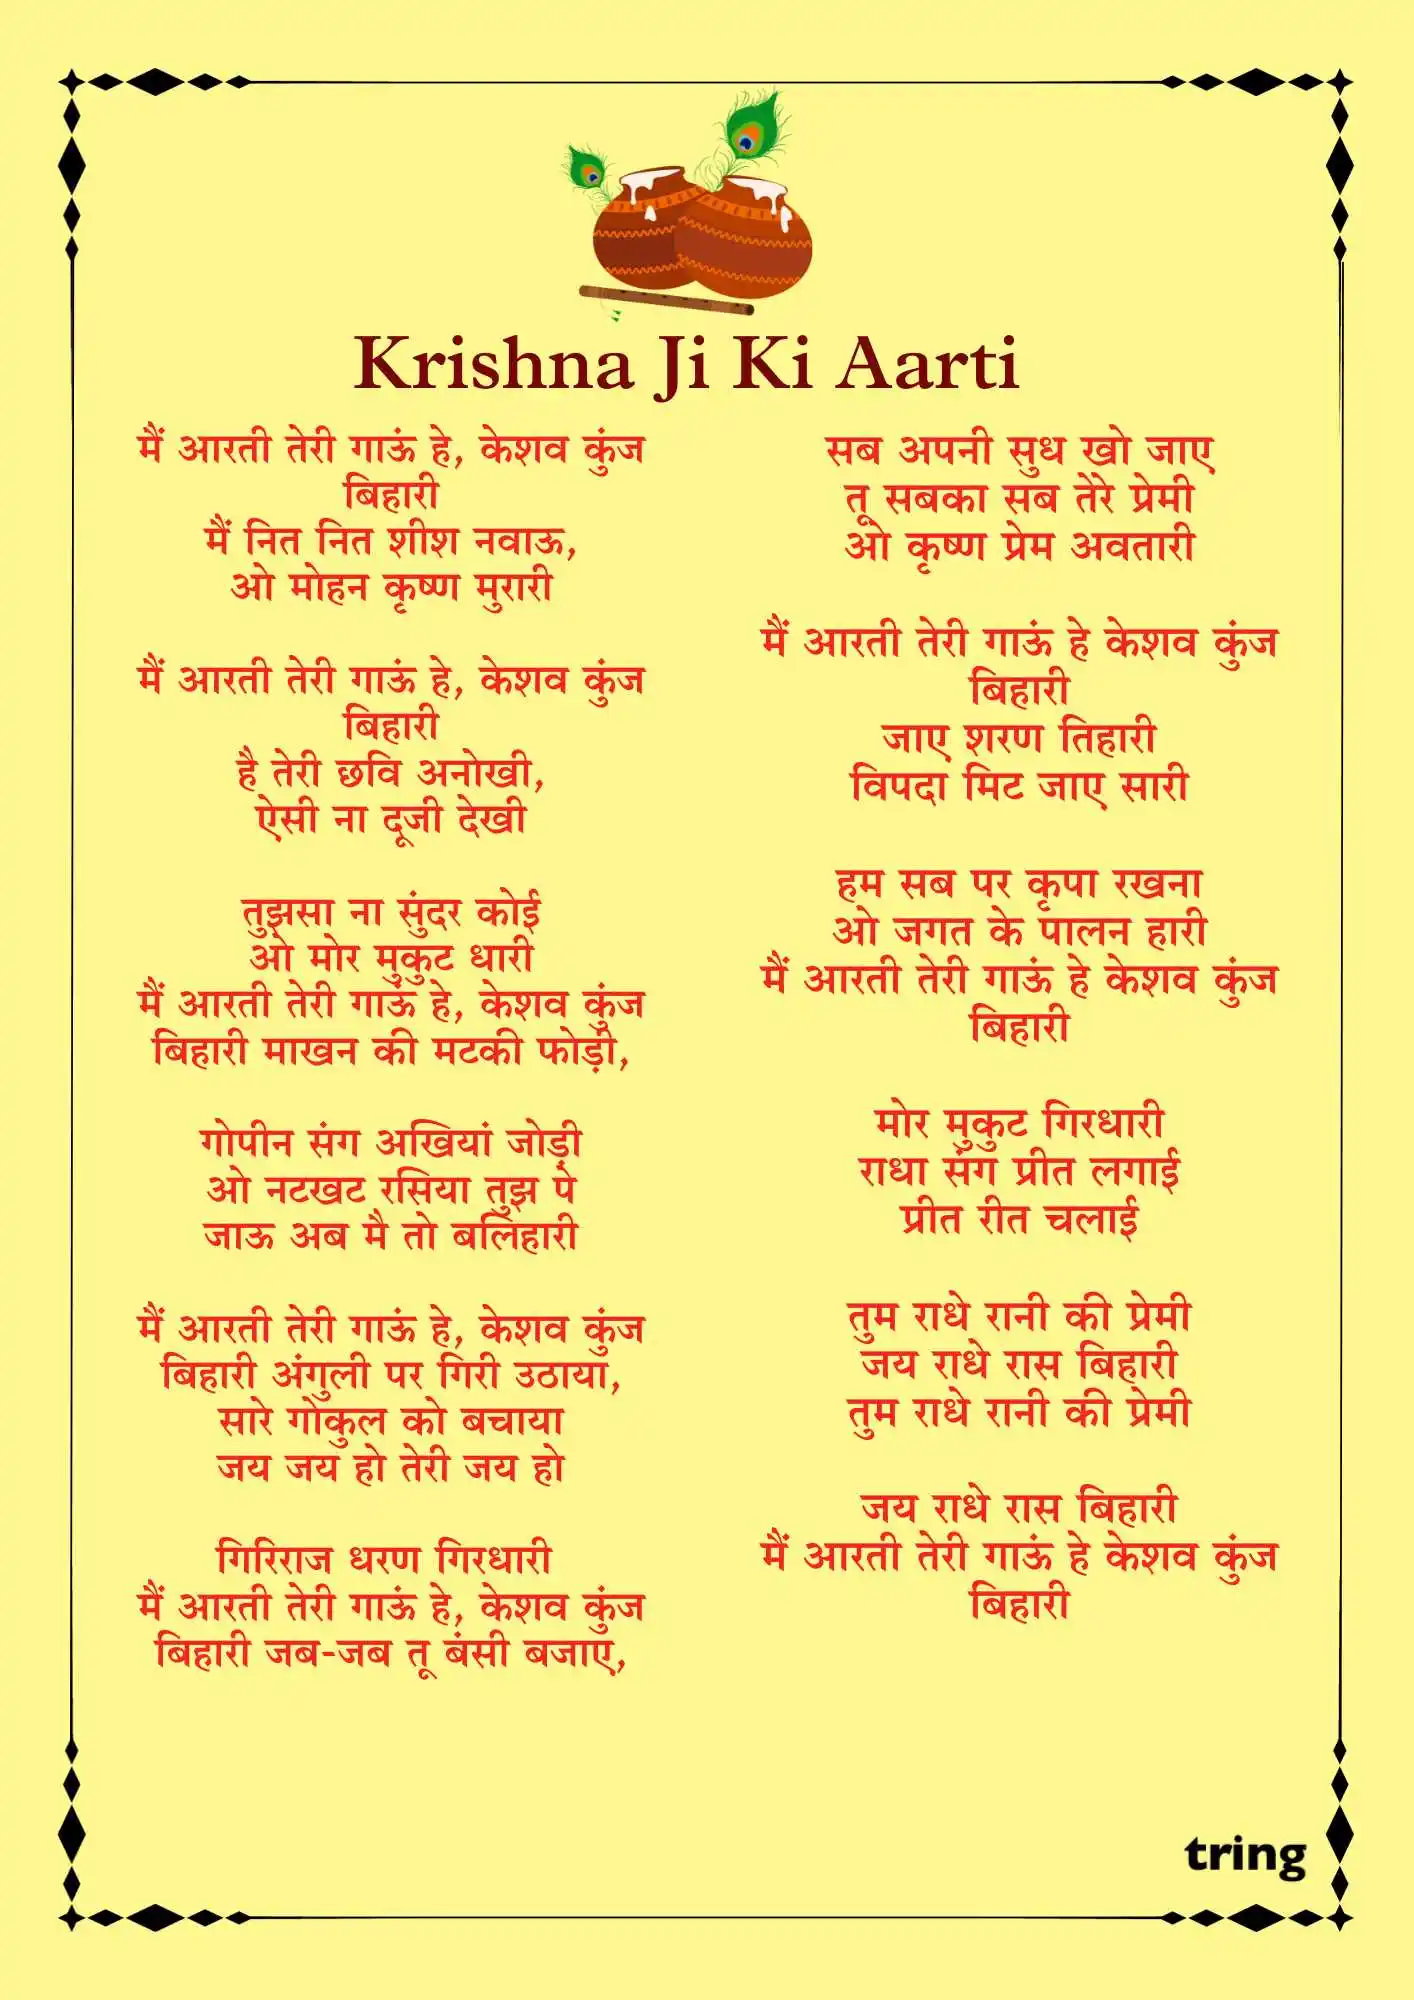 Krishna Ji Ki Aarti
मैं आरती तेरी गाऊं हे, केशव कुंज
बिहारी
मैं नित नित शीश नवाऊ,
ओ मोहन कृष्ण मुरारी
मैं आरती तेरी गाऊं हे, केशव कुंज
बिहारी
है तेरी छवि अनोखी,
ऐसी ना दूजी देखी
तुझसा ना सुंदर कोई
ओ मोर मुकुट धारी
मैं आरती तेरी गाऊं हे, केशव कुंज
बिहारी माखन की मटकी फोड़ी,
गोपीन संग अखियां जोड़ी
ओ नटखट रसिया तुझ पे
जाऊ अब मै तो बलिहारी
मैं आरती तेरी गाऊं हे, केशव कुंज
बिहारी अंगुली पर गिरी उठाया,
सारे गोकुल को बचाया
जय जय हो तेरी जय हो
गिरिराज धरण गिरधारी
मैं आरती तेरी गाऊं हे, केशव कुंज
बिहारी जब-जब तू बंसी बजाए,
सब अपनी सुध खो जाए
तू सबका सब तेरे प्रेमी
ओ कृष्ण प्रेम अवतारी
मैं आरती तेरी गाऊं हे केशव कुंज
बिहारी
जाए शरण तिहारी
विपदा मिट जाए सारी
हम सब पर कृपा रखना
ओ जगत के पालन हारी
मैं आरती तेरी गाऊं हे केशव कुंज
बिहारी
मोर मुकुट गिरधारी
राधा संग प्रीत लगाई
प्रीत रीत चलाई
तुम राधे रानी की प्रेमी
जय राधे रास बिहारी
तुम राधे रानी की प्रेमी
जय राधे रास बिहारी
मैं आरती तेरी गाऊं हे केशव कुंज
बिहारी
tring